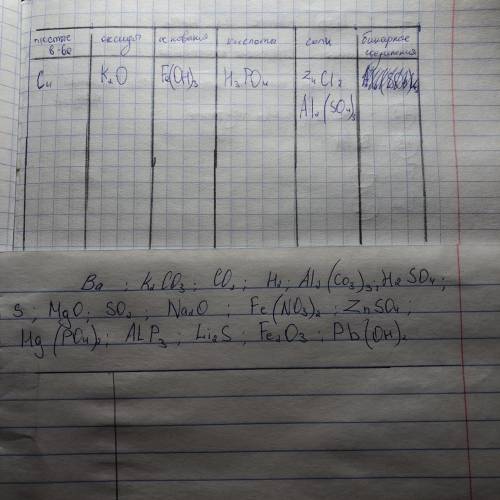 простые оксиды основания кислоты соли бинарное
в-ва соединения
Cu K₂O Fe(OH)₃ H₃PO₄ ZnCl₂
Al₂(SO₄)₃
Ba ; K₂CO₃ ; CO₂ ; H₂ ; Al₂(CO₃)₃ ; H₂SO₄ ;
S ; MgO ; SO₂ ; Na₂O ; Fe(NO₃)₂ ; ZnSO₄ ;
Mg(PO₄)₂ ; ALP₃ ; Li₂S ; Fe₂O₃ ; Pb(OH)₂